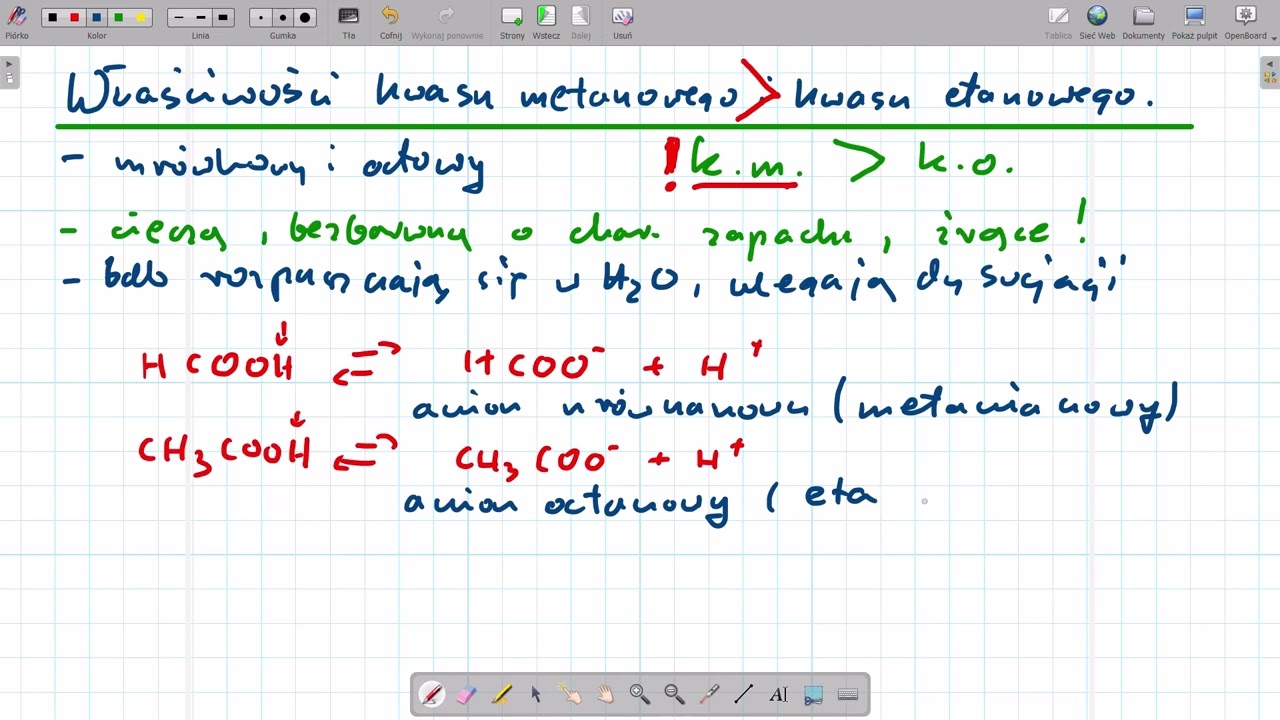 Piórko Kolor Linia Gumka Tła Cofnij Wykonaj ponownie Strony Wstecz Dalej Usuń Tablica Sieć Web Dokumenty Pokaż pulpit OpenBoard
Właściwości kwasu metanowego > i kwasu etanowego.
- mrówkowy i octowy ! k.m. > k.o.
- cieczą, bezbarwną o char. zapachu, żrące!
- bdb rozpuszczają się w H₂O, ulegają dysocjacji
HCOOH ⇌ HCOO⁻ + H⁺
anion mrówkanowy (metanianowy)
CH₃COOH ⇌ CH₃COO⁻ + H⁺
anion octanowy ( eta